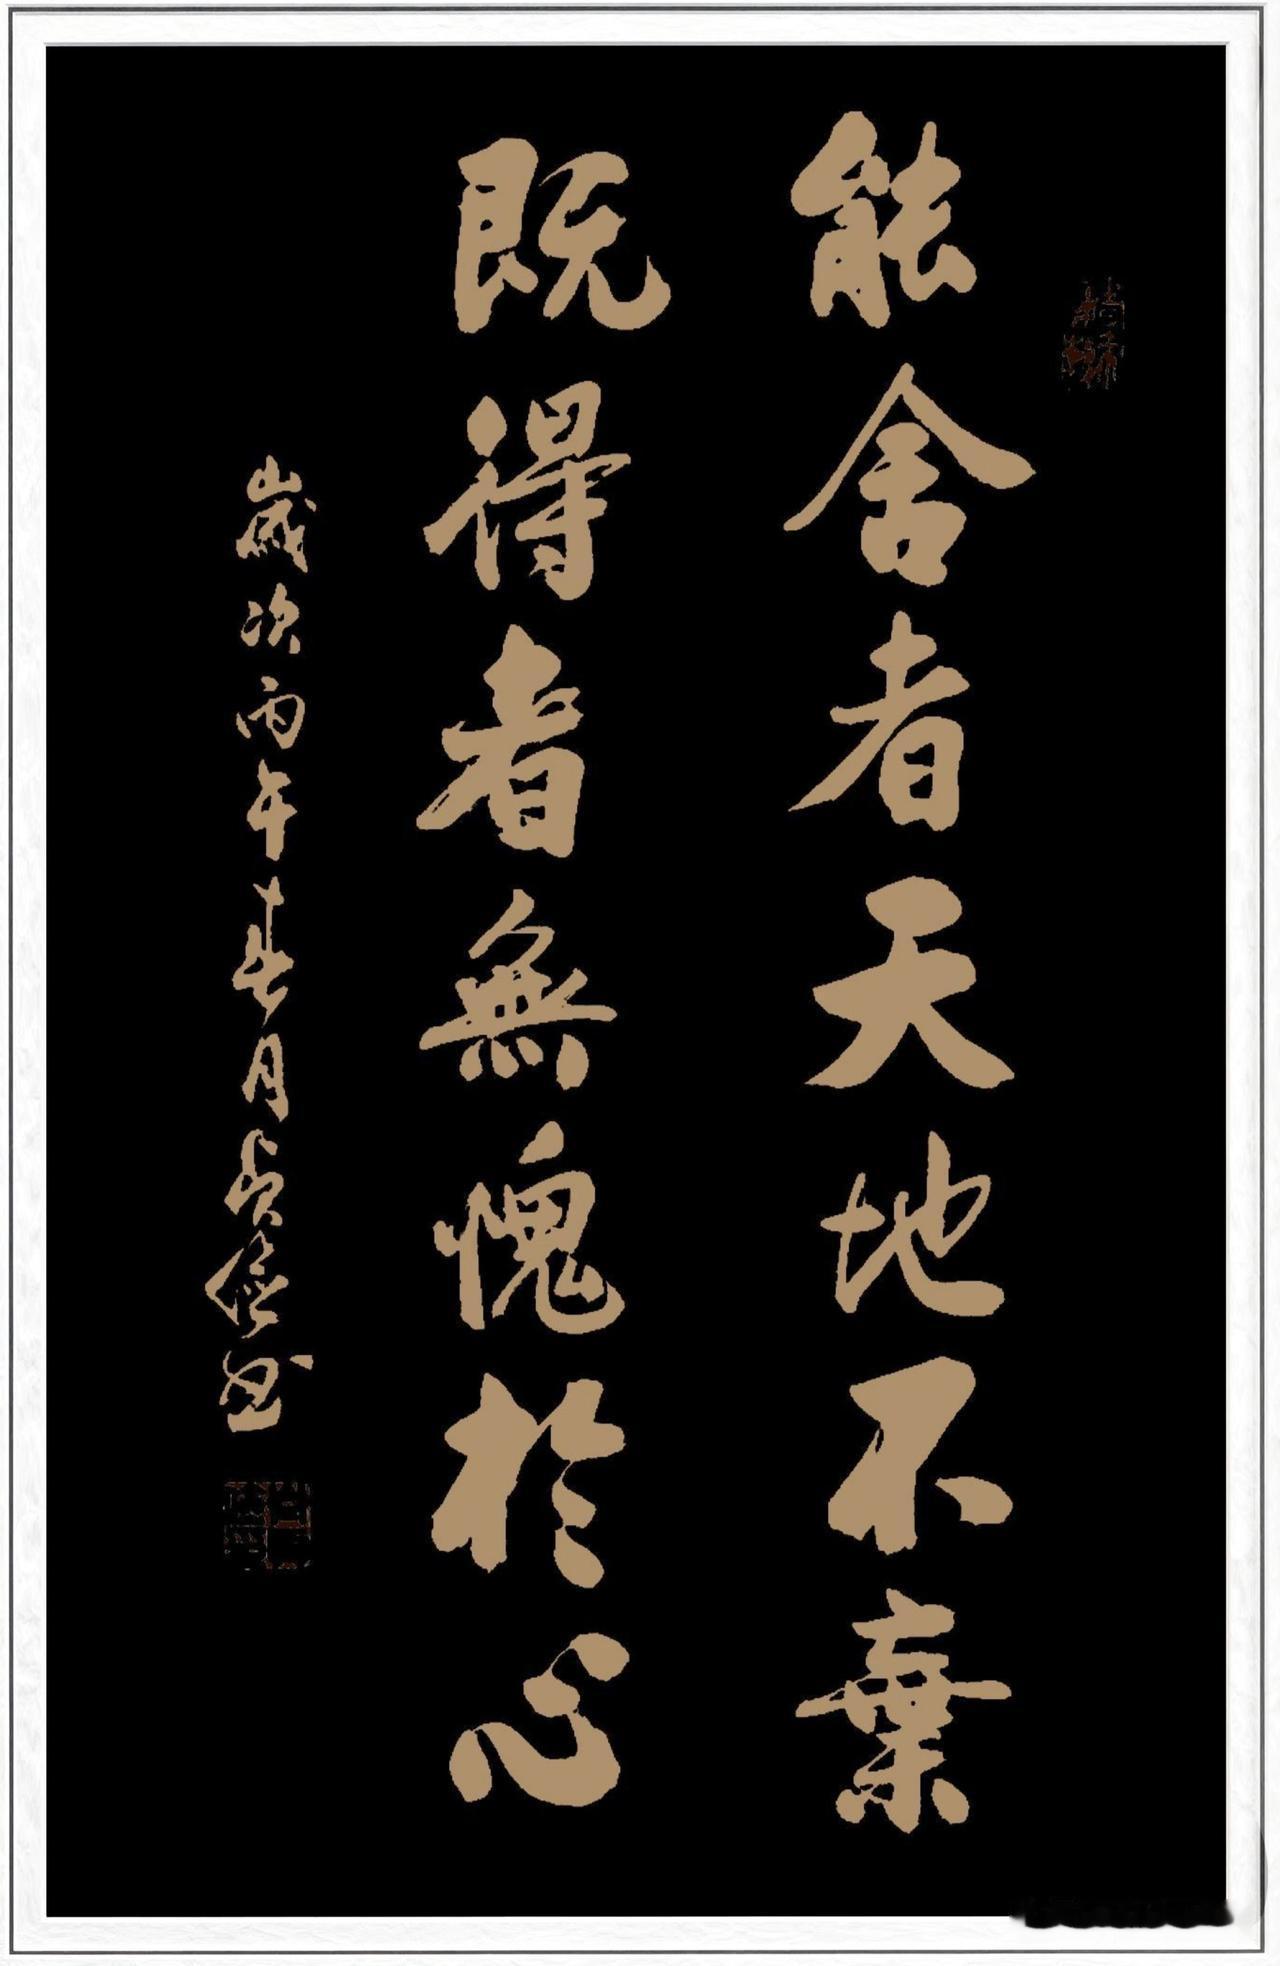 能舍者天地不棄
既得者無愧於心
歲次丙午春月吳儉书